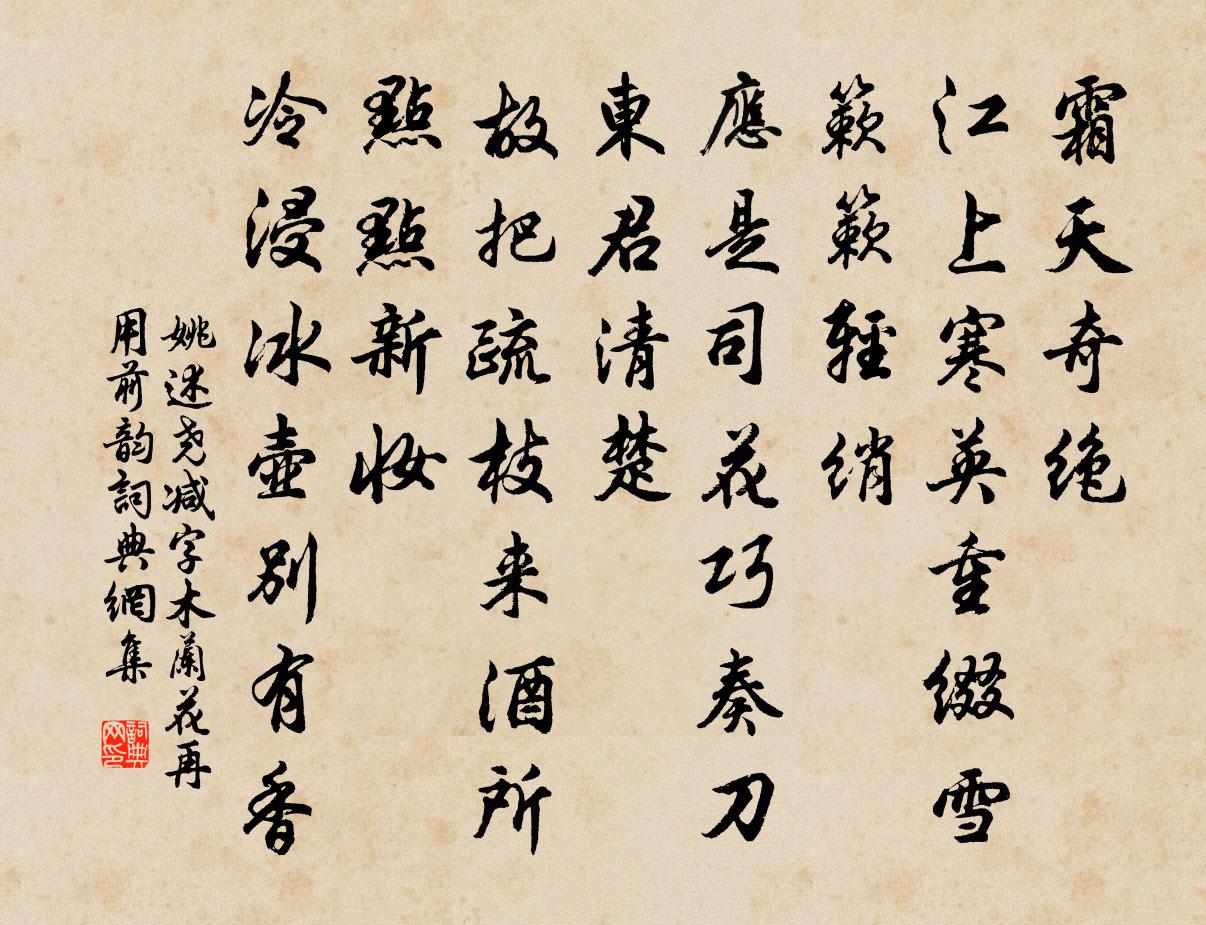 霜天奇绝
江上寒英重缀雪
簌簌輕绡
應是司花巧奏刀
東君清楚
故把疏枝来酒所
點點新妆
冷浸冰壶別有香
姚述尧减字木蘭花再
用前韵詞典網集
詞典
网印